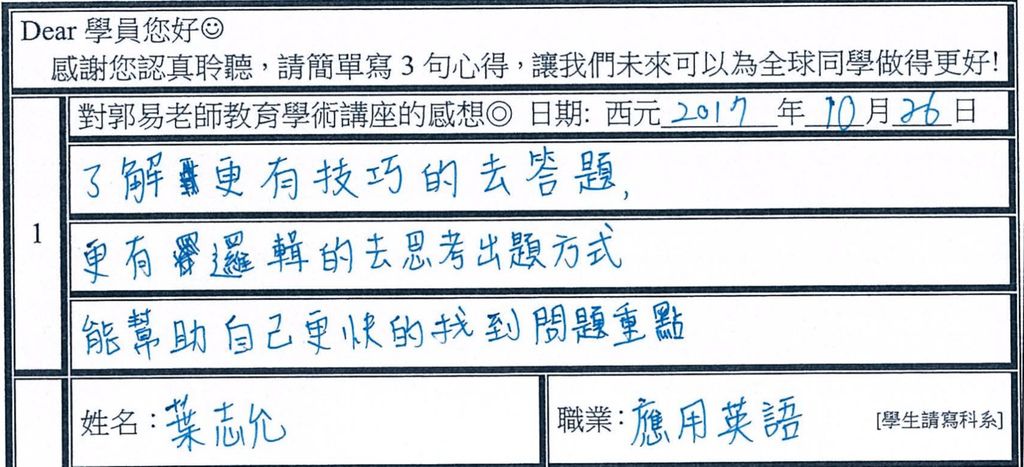 Dear 學員您好☺
感謝您認真聆聽，請簡單寫 3 句心得，讓我們未來可以為全球同學做得更好!
1
對郭易老師教育學術講座的感想◎ 日期: 西元 2017 年 10 月 26 日
了解更有技巧的去答題,
更有邏輯的去思考出題方式
能幫助自己更快的找到問題重點
姓名：葉志允
職業：應用英語 [學生請寫科系]